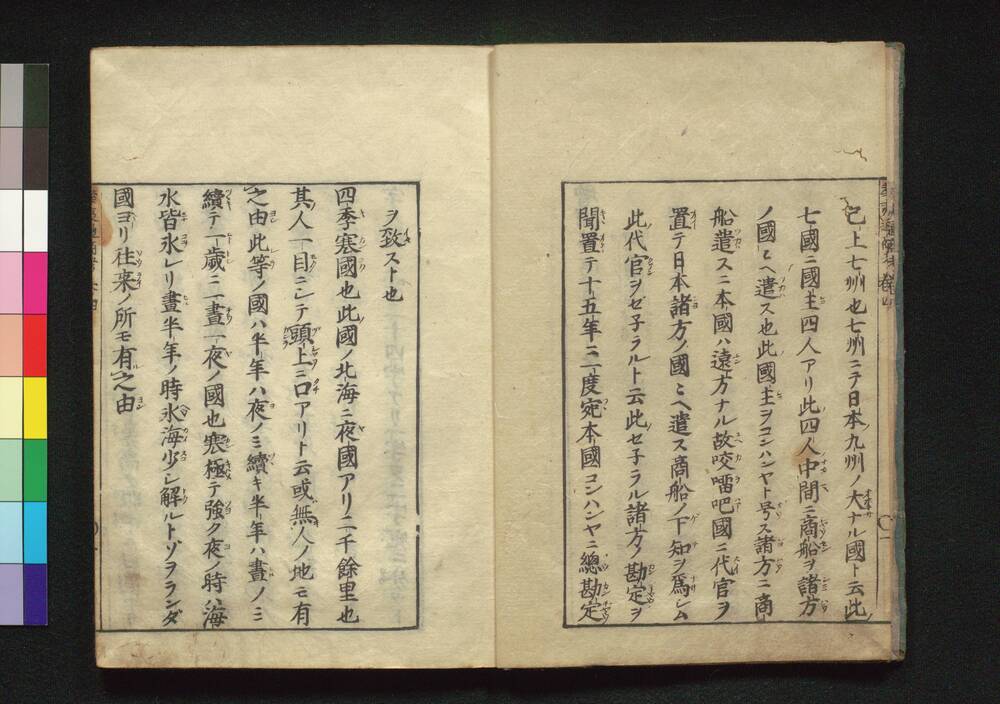 已上七州也七州ニテ日本九州ノ大ナル國ト云此
七國ニ國主四人アリ此四人中間ニ商船ヲ諸方
ノ國〻ヘ遣ス也此國主ヲコンハンヤト号ス諸方ニ商
船遣スニ本國ハ遠方ナル故咬𠺕吧國ニ代官ヲ
置テ日本諸方ノ國〻ヘ遣ス商船ノ下知ヲ爲シム
此代官ヲゼ子ラルト云此セ子ラル諸方ノ勘定ヲ
聞置テ十五年ニ一度宛本國コンハンヤニ總勘定
ヲ致スト也
四季寒國也此國ノ北海ニ夜國アリ二千餘里也
其人一目ニシテ頭上ニ口アリト云或無人ノ地モ有
之由此等ノ國ハ半年ハ夜ノミ續キ半年ハ晝ノミ
續テ一歳ニ一晝一夜ノ國也寒極テ強ク夜ノ時ハ海
水皆氷レリ晝半年ノ時氷海少シ解ルトゾヲランダ
國ヨリ往来ノ所モ有之由